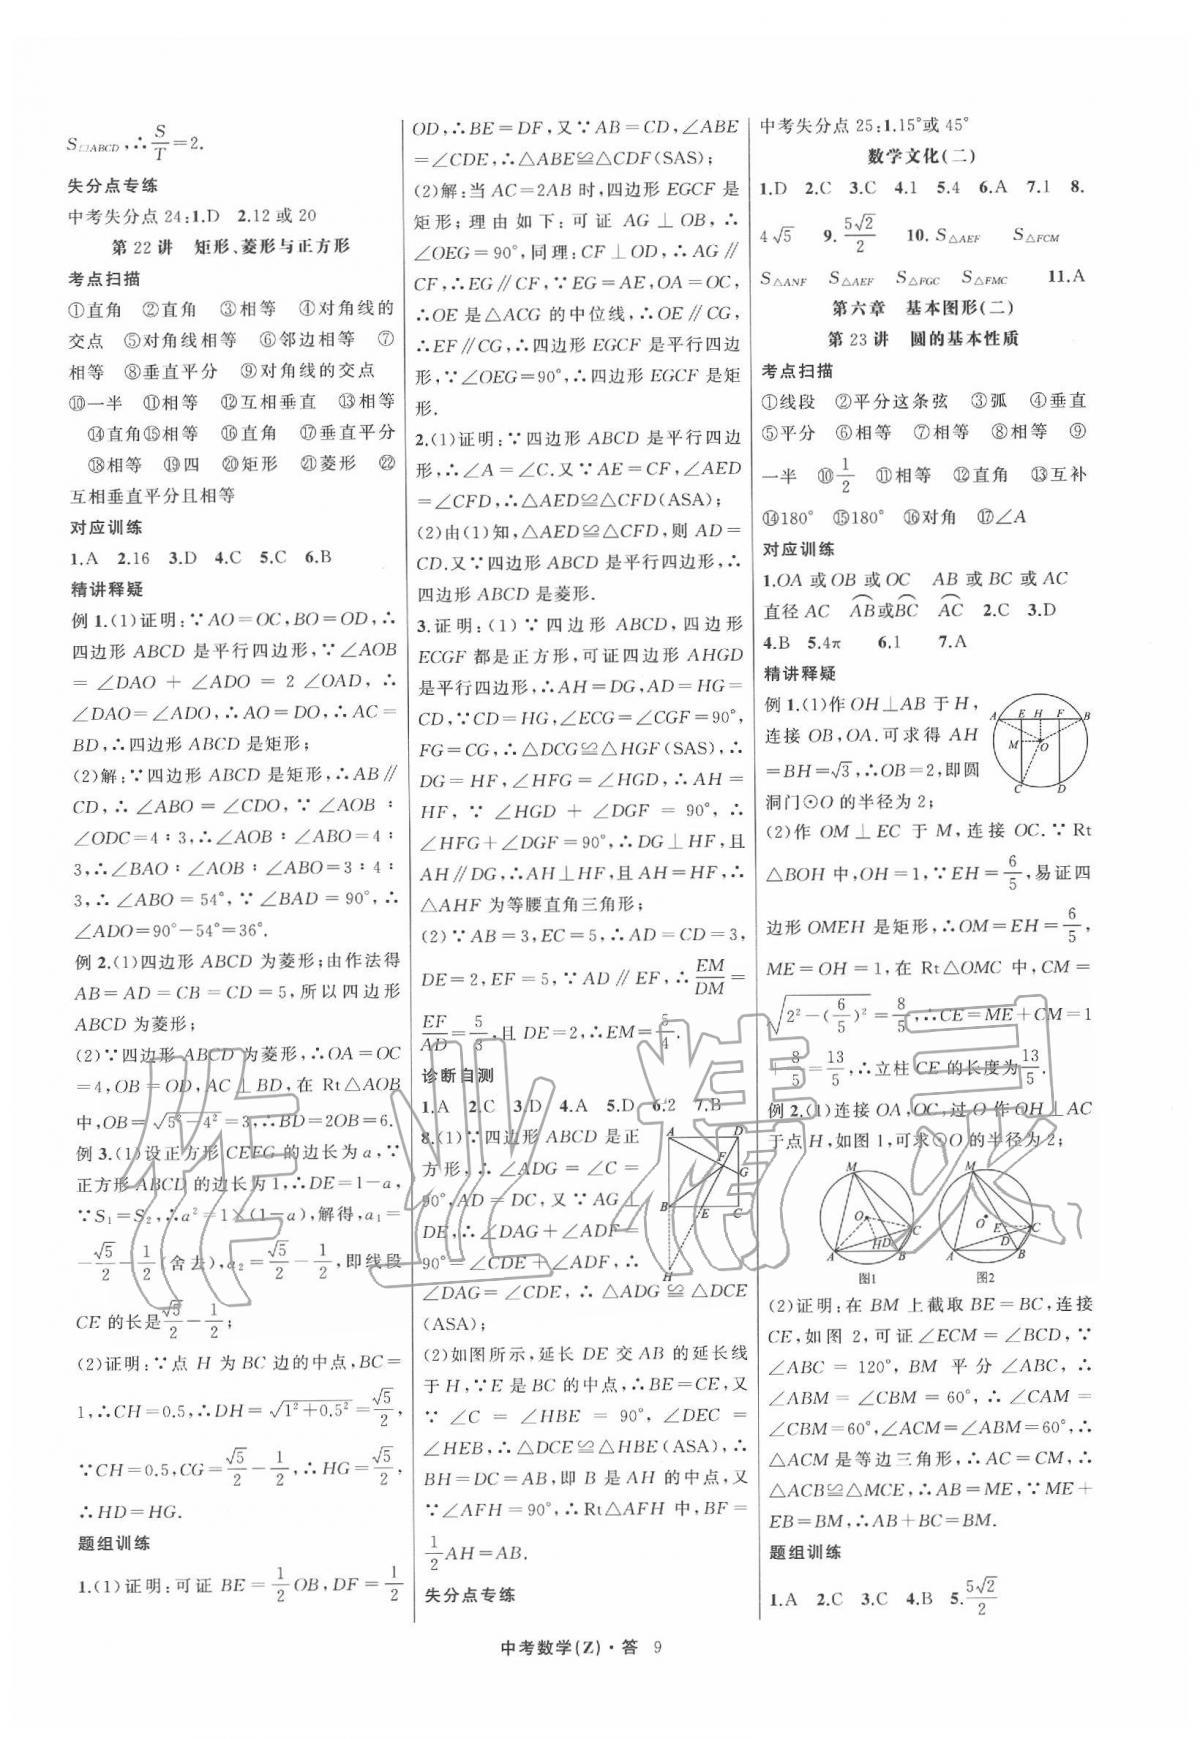 S□ABCD,∴S/T=2.
失分点专练
中考失分点 24:1.D 2.12 或 20
第 22 讲 矩形、菱形与正方形
考点扫描
①直角 ②直角 ③相等 ④对角线的
交点 ⑤对角线相等 ⑥邻边相等 ⑦
相等 ⑧垂直平分 ⑨对角线的交点
⑩一半 ⑪相等 ⑫互相垂直 ⑬相等
⑭直角⑮相等 ⑯直角 ⑰垂直平分
⑱相等 ⑲四 ⑳矩形 ㉑菱形 ㉒
互相垂直平分且相等
对应训练
1.A 2.16 3.D 4.C 5.C 6.B
精讲释疑
例 1.(1)证明:∵AO=OC,BO=OD,∴
四边形 ABCD 是平行四边形,∵∠AOB
=∠DAO+∠ADO=2∠OAD,∴
∠DAO=∠ADO,∴AO=DO,∴AC=
BD,∴四边形 ABCD 是矩形;
(2)解:∵四边形 ABCD 是矩形,∴AB∥
CD,∴∠ABO=∠CDO,∵∠AOB∶
∠ODC=4∶3,∴∠AOB∶∠ABO=4∶
3,∴∠BAO∶∠AOB∶∠ABO=3∶4∶
3,∴∠ABO=54°,∵∠BAD=90°,∴
∠ADO=90°-54°=36°.
例 2.(1)四边形 ABCD 为菱形;由作法得
AB=AD=CB=CD=5,所以四边形
ABCD 为菱形;
(2)∵四边形 ABCD 为菱形,∴OA=OC
=4,OB=OD,AC⊥BD,在 Rt△AOB
中,OB=√(5²-4²)=3,∴BD=2OB=6.
例 3.(1)设正方形 CEFG 的边长为 a,∵
正方形 ABCD 的边长为 1,∴DE=1-a,
∵S₁=S₂,∴a²=1×(1-a),解得,a₁=
-√5/2-1/2(舍去),a₂=√5/2-1/2,即线段
CE 的长是√5/2-1/2;
(2)证明:∵点 H 为 BC 边的中点,BC=
1,∴CH=0.5,∴DH=√(1²+0.5²)=√5/2,
∵CH=0.5,CG=√5/2-1/2,∴HG=√5/2,
∴HD=HG.
题组训练
1.(1)证明:可证 BE=1/2OB,DF=1/2
OD,∴BE=DF,又∵AB=CD,∠ABE
=∠CDE,∴△ABE≌△CDF(SAS);
(2)解:当 AC=2AB 时,四边形 EGCF 是
矩形;理由如下:可证 AG⊥OB,∴
∠OEG=90°,同理:CF⊥OD,∴AG∥
CF,∴EG∥CF,∵EG=AE,OA=OC,
∴OE 是△ACG 的中位线,∴OE∥CG,
∴EF∥CG,∴四边形 EGCF 是平行四边
形,∵∠OEG=90°,∴四边形 EGCF 是矩
形.
2.(1)证明:∵四边形 ABCD 是平行四边
形,∴∠A=∠C.又∵AE=CF,∠AED
=∠CFD,∴△AED≌△CFD(ASA);
(2)由(1)知,△AED≌△CFD,则 AD=
CD.又∵四边形 ABCD 是平行四边形,∴
四边形 ABCD 是菱形.
3.证明:(1)∵四边形 ABCD,四边形
ECGF 都是正方形,可证四边形 AHGD
是平行四边形,∴AH=DG,AD=HG=
CD,∵CD=HG,∠ECG=∠CGF=90°,
FG=CG,∴△DCG≌△HGF(SAS),∴
DG=HF,∠HFG=∠HGD,∴AH=
HF,∵∠HGD+∠DGF=90°,∴
∠HFG+∠DGF=90°,∴DG⊥HF,且
AH∥DG,∴AH⊥HF,且 AH=HF,∴
△AHF 为等腰直角三角形;
(2)∵AB=3,EC=5,∴AD=CD=3,
DE=2,EF=5,∵AD∥EF,∴EM/DM=
EF/AD=5/3,且 DE=2,∴EM=5/4.
诊断自测
1.A 2.C 3.D 4.A 5.D 6.2 7.B
8.(1)∵四边形 ABCD 是正
方形,∴∠ADG=∠C=
90°,AD=DC,又∵AG⊥
DE,∴∠DAG+∠ADF=
90°=∠CDE+∠ADF,∴
∠DAG=∠CDE,∴△ADG≌△DCE
(ASA);
(2)如图所示,延长 DE 交 AB 的延长线
于 H,∵E 是 BC 的中点,∴BE=CE,又
∵∠C=∠HBE=90°,∠DEC=
∠HEB,∴△DCE≌△HBE(ASA),∴
BH=DC=AB,即 B 是 AH 的中点,又
∵∠AFH=90°,∴Rt△AFH 中,BF=
1/2AH=AB.
失分点专练
A D F G B E C H
中考失分点 25:1.15°或 45°
数学文化(二)
1.D 2.C 3.C 4.1 5.4 6.A 7.1 8.
4√5 9.5√2/2 10.S△AEF S△FCM
S△ANF S△AEF S△FGC S△FMC 11.A
第六章 基本图形(二)
第 23 讲 圆的基本性质
考点扫描
①线段 ②平分这条弦 ③弧 ④垂直
⑤平分 ⑥相等 ⑦相等 ⑧相等 ⑨
一半 ⑩1/2 ⑪相等 ⑫直角 ⑬互补
⑭180° ⑮180° ⑯对角 ⑰∠A
对应训练
1.OA 或 OB 或 OC AB 或 BC 或 AC
直径 AC AB或BC AC 2.C 3.D
4.B 5.4π 6.1 7.A
精讲释疑
例 1.(1)作 OH⊥AB 于 H,
连接 OB,OA.可求得 AH
=BH=√3,∴OB=2,即圆
洞门⊙O 的半径为 2;
A E H F B M O C D
(2)作 OM⊥EC 于 M,连接 OC.∵Rt
△BOH 中,OH=1,∵EH=6/5,易证四
边形 OMEH 是矩形,∴OM=EH=6/5,
ME=OH=1,在 Rt△OMC 中,CM=
√(2²-(6/5)²)=8/5,∴CE=ME+CM=1
+8/5=13/5,∴立柱 CE 的长度为13/5.
例 2.(1)连接 OA,OC,过 O 作 OH⊥AC
于点 H,如图 1,可求⊙O 的半径为 2;
M O A H D B C
图1
M O E C A D B
图2
(2)证明:在 BM 上截取 BE=BC,连接
CE,如图 2,可证∠ECM=∠BCD,∵
∠ABC=120°,BM 平分∠ABC,∴
∠ABM=∠CBM=60°,∴∠CAM=
∠CBM=60°,∠ACM=∠ABM=60°,∴
△ACM 是等边三角形,∴AC=CM,∴
△ACB≌△MCE,∴AB=ME,∵ME+
EB=BM,∴AB+BC=BM.
题组训练
1.A 2.C 3.C 4.B 5.5√2/2
中考数学(Z)·答 9
作业精灵